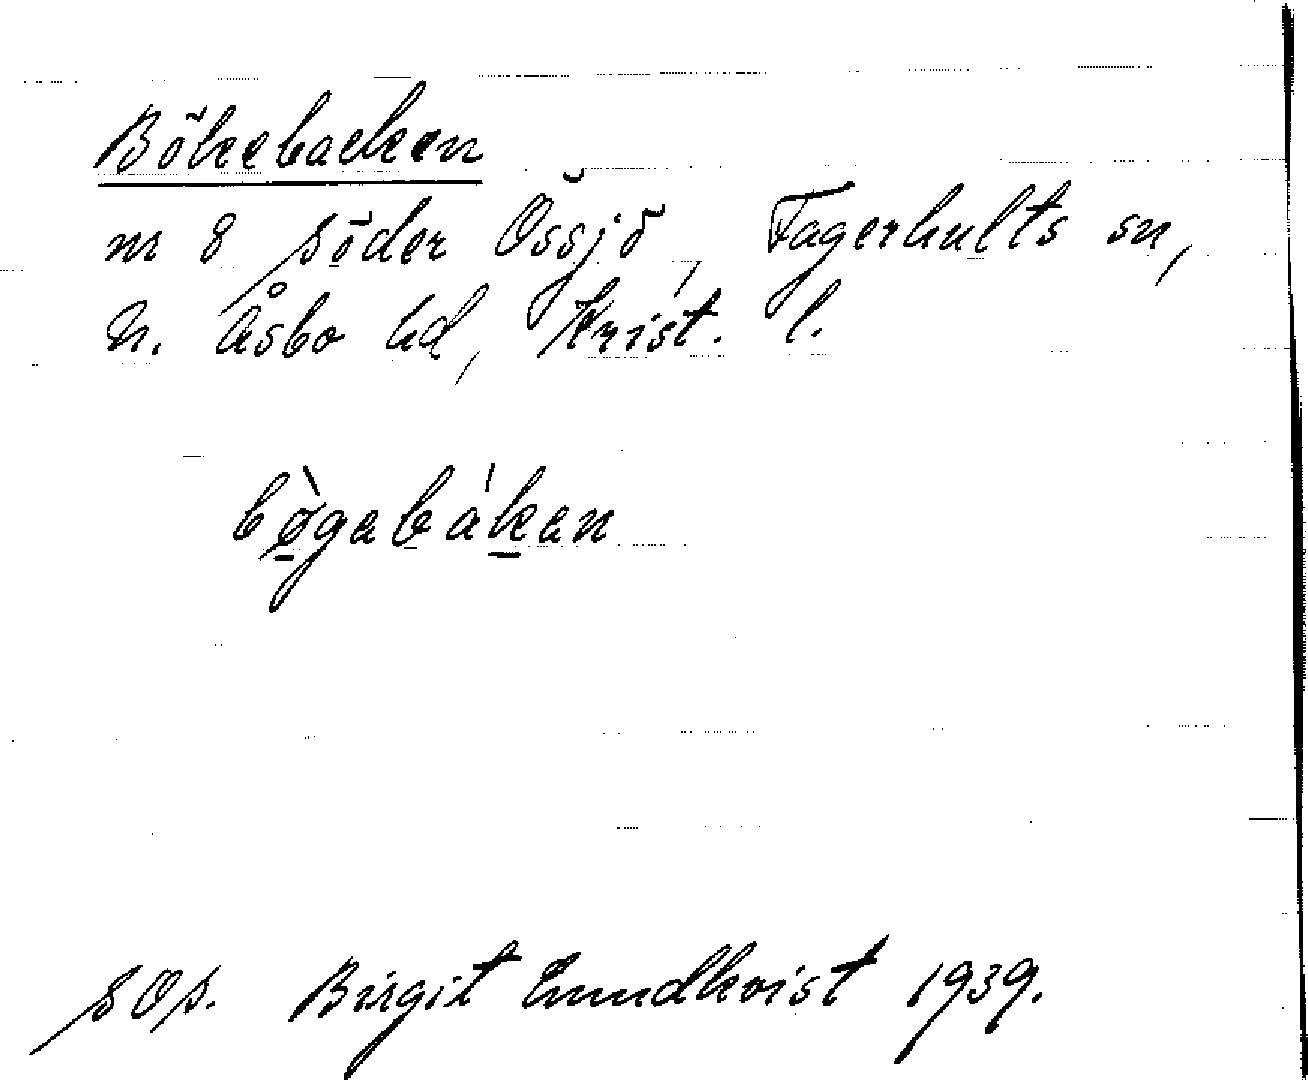 Bökebacken
nr 8 Söder Össjö, Fagerhults sn,
N. Åsbo hd, Krist. l.
bø̀gabákan
sOs. Birgit Lundkvist 1939.